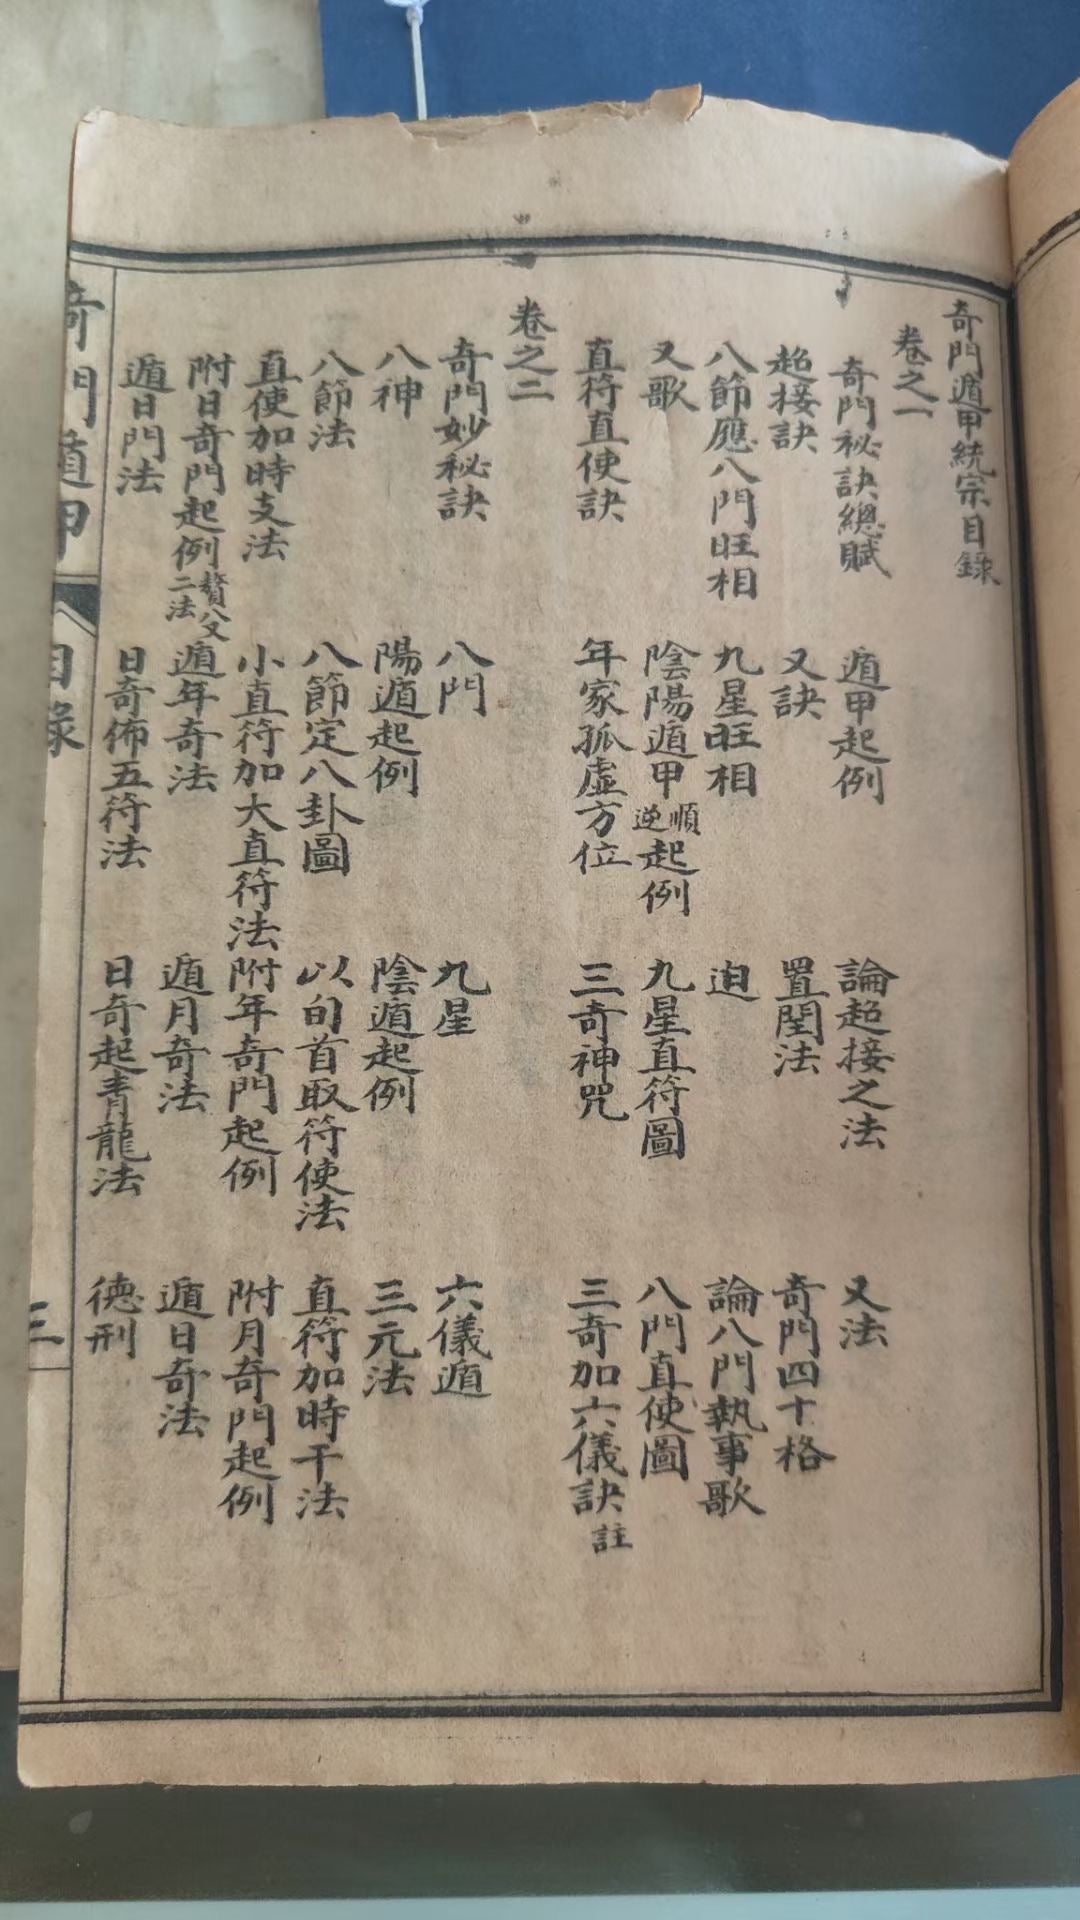 奇門遁甲統宗目錄
卷之一
奇門秘訣總賦 遁甲起例 論超接之法 又法
超接訣 又訣 置閏法 奇門四十格
八節應八門旺相 九星旺相 迫 論八門執事歌
又歌 陰陽遁甲順逆起例 九星直符圖 八門直使圖
直符直使訣 年家孤虛方位 三奇神咒 三奇加六儀訣註
卷之二
奇門妙秘訣 八門 九星 六儀遁
八神 陽遁起例 陰遁起例 三元法
八節法 八節定八卦圖 以旬首取符使法 直符加時干法
直使加時支法 小直符加大直符法 附年奇門起例 附月奇門起例
附日奇門起例 二法 遁年奇法 遁月奇法 遁日奇法
遁日門法 日奇佈五符法 日奇起青龍法 德刑
奇門遁甲 目錄 三